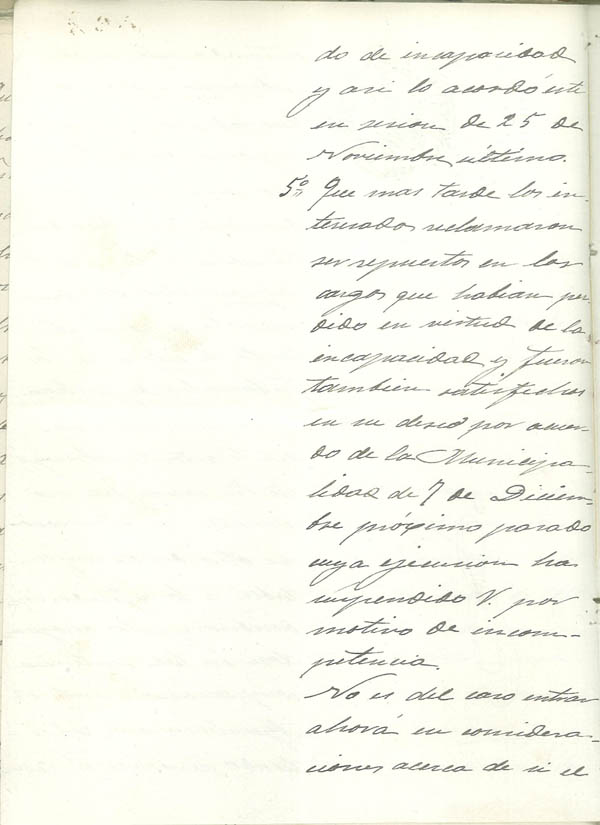 do de incapacidad
y asi lo acordó este
en sesion de 25 de
Noviembre último.
5º Que mas tarde los in-
teresados reclamaron
ser repuestos en los
cargos que habian per-
dido en virtud de la
incapacidad y fueron
tambien satisfechos
en su deseo por acuer-
do de la Municipa-
lidad de 7 de Diciem-
bre próximo pasado
cuya ejecucion ha
suspendido V. por
motivo de incom-
petencia.
No es del caso entrar
ahora en considera-
ciones acerca de si el